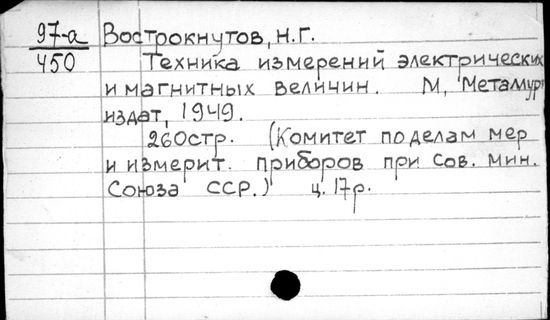 97-а Вострокнутов, Н.Г.
450 Техника измерений электрических
и магнитных величин. М, Металург
издат, 1949.
260стр. (Комитет по делам мер
и измерит. приборов при Сов. мин.
Союза ССР.) ц. 17р.